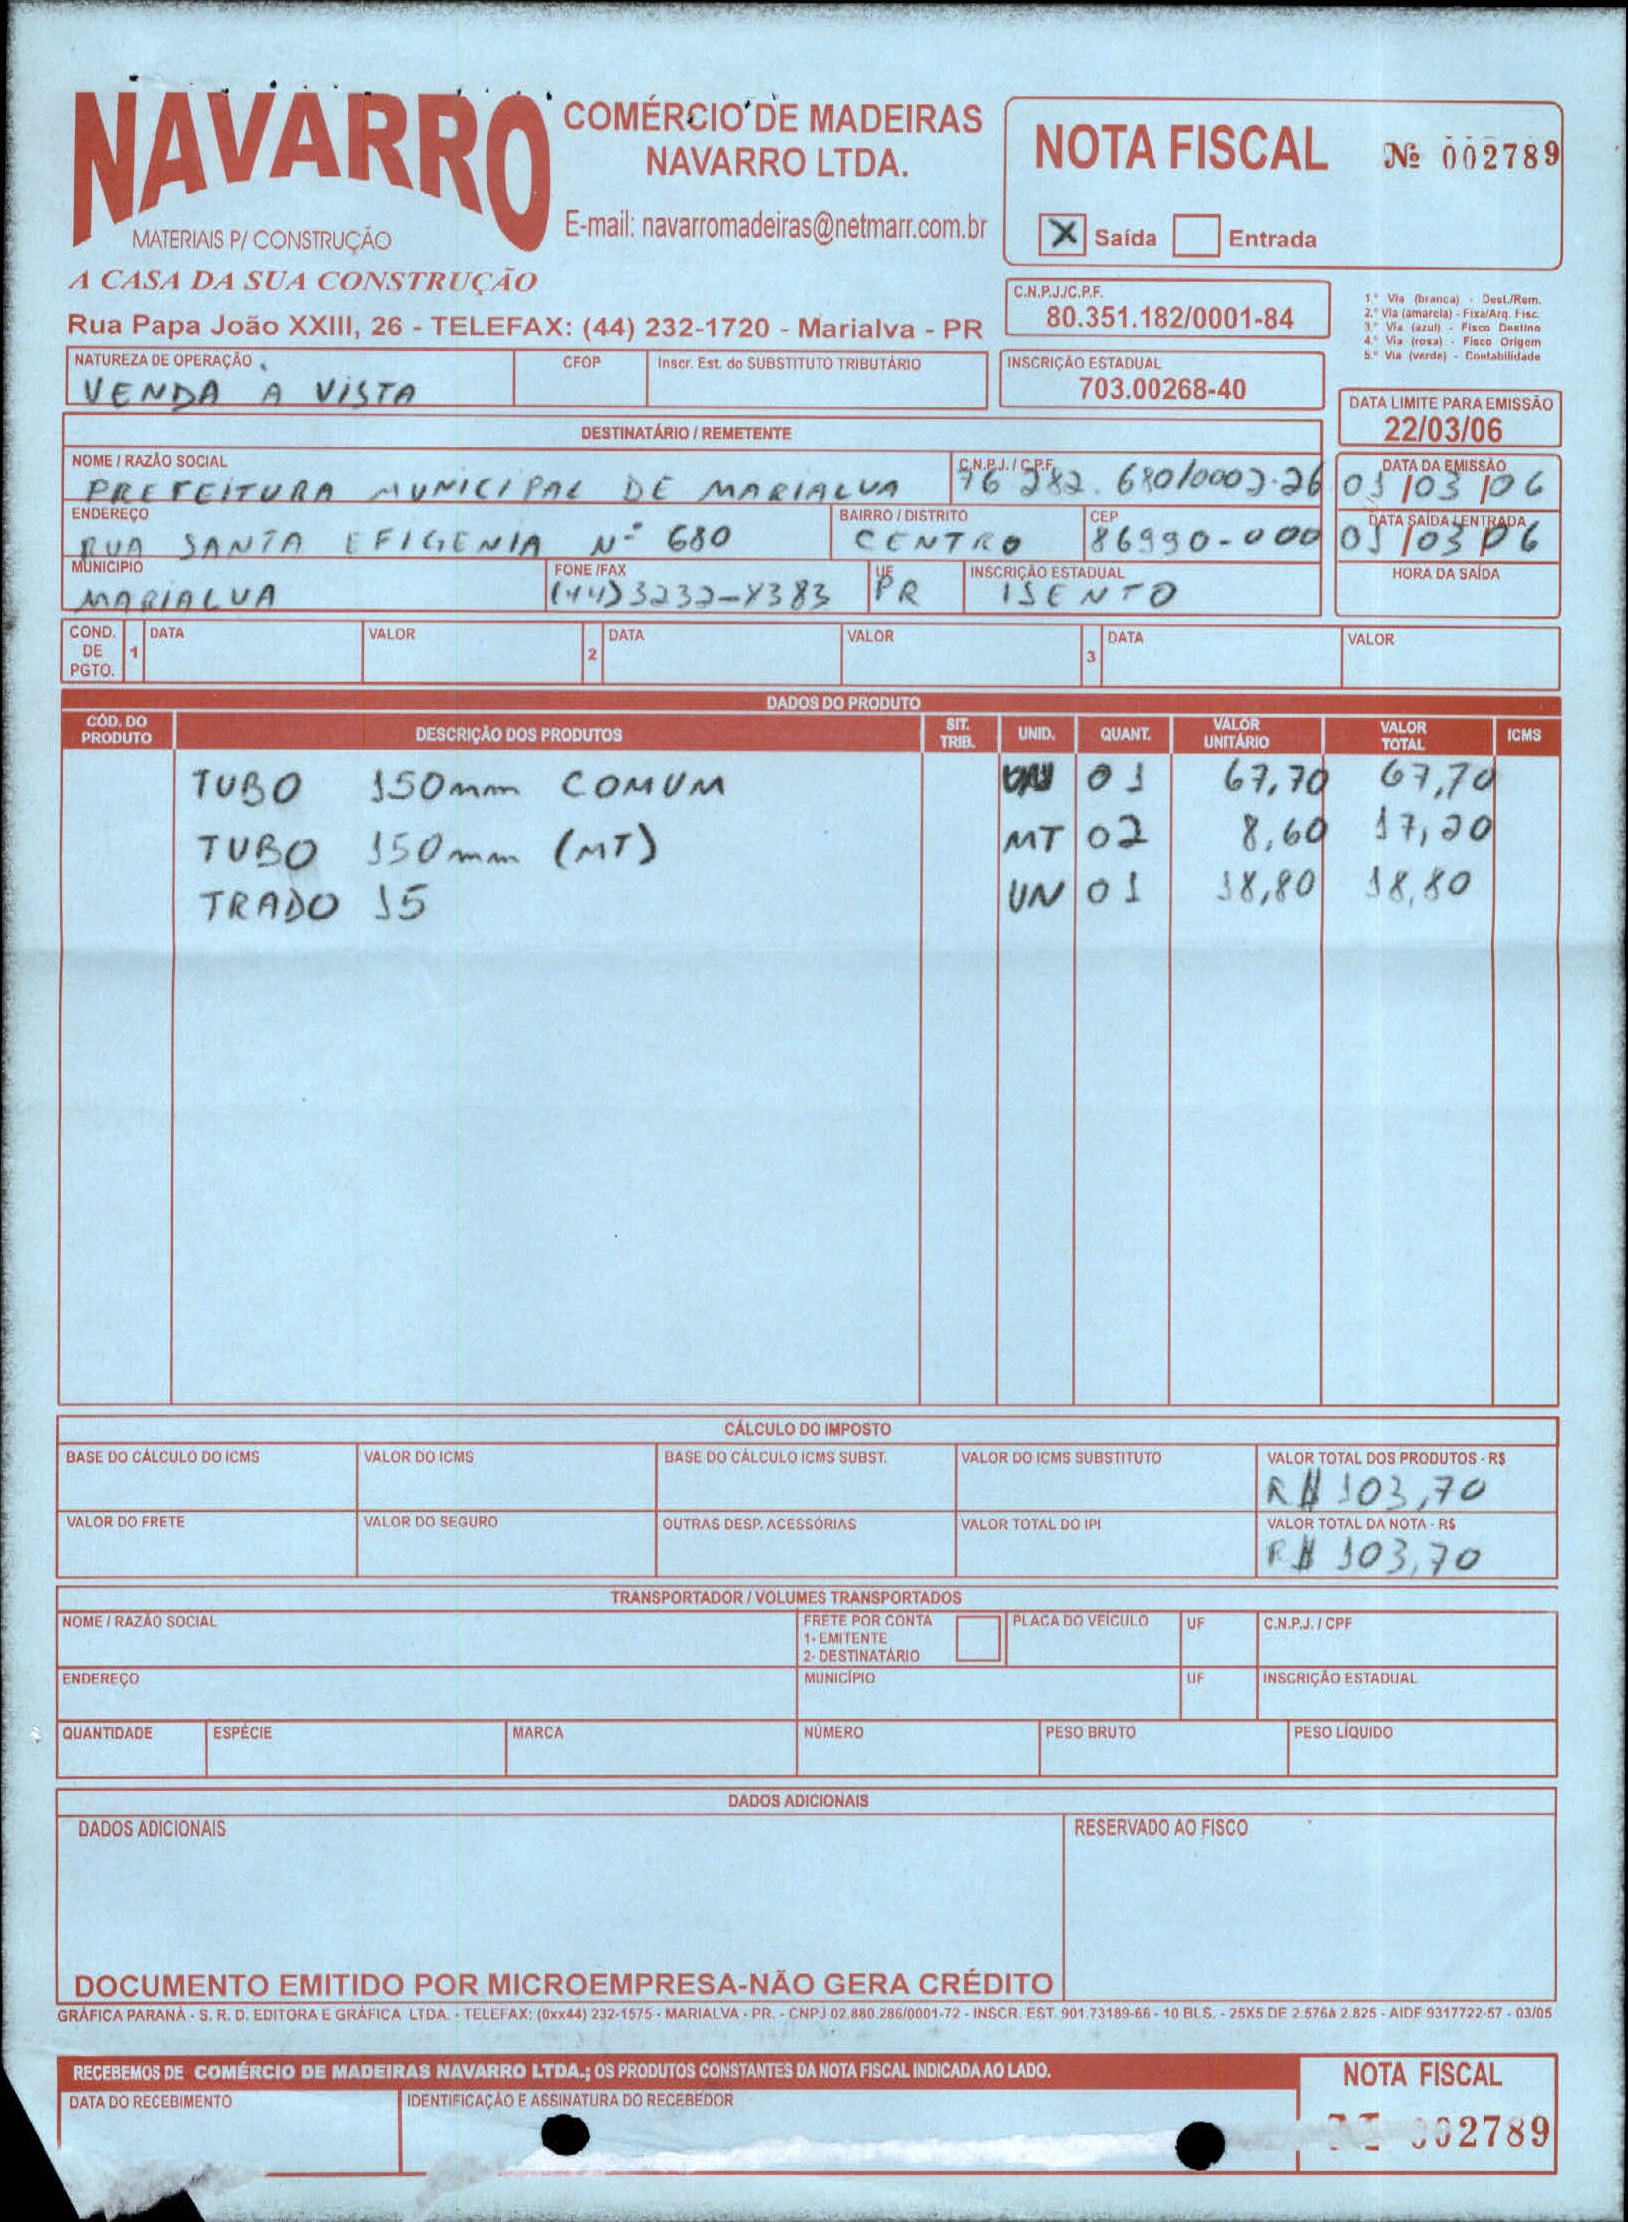 NAVARRO
MATERIAIS P/ CONSTRUÇÃO
A CASA DA SUA CONSTRUÇÃO
COMÉRCIO DE MADEIRAS
NAVARRO LTDA.
E-mail: navarromadeiras@netmarr.com.br
Rua Papa João XXIII, 26 - TELEFAX: (44) 232-1720 - Marialva - PR
NOTA FISCAL Nº 002789
X Saída Entrada
C.N.P.J./C.P.F.
80.351.182/0001-84
1.ª Via (branca) - Dest./Rem.
2.ª Via (amarela) - Fixa/Arq. Fisc.
3.ª Via (azul) - Fisco Destino
4.ª Via (rosa) - Fisco Origem
5.ª Via (verde) - Contabilidade
NATUREZA DE OPERAÇÃO CFOP Inscr. Est. do SUBSTITUTO TRIBUTÁRIO INSCRIÇÃO ESTADUAL
VENDA A VISTA 703.00268-40
DATA LIMITE PARA EMISSÃO
22/03/06
DESTINATÁRIO / REMETENTE
NOME / RAZÃO SOCIAL C.N.P.J. / C.P.F. DATA DA EMISSÃO
PREFEITURA MUNICIPAL DE MARIALVA 76 282. 680/0001-26 01/03/06
ENDEREÇO BAIRRO / DISTRITO CEP DATA SAÍDA / ENTRADA
RUA SANTA EFIGENIA Nº 680 CENTRO 86990-000 01/03/06
MUNICÍPIO FONE /FAX UF INSCRIÇÃO ESTADUAL HORA DA SAÍDA
MARIALVA (44) 3232-8383 PR ISENTO
COND. DE PGTO. 1 DATA VALOR 2 DATA VALOR 3 DATA VALOR
DADOS DO PRODUTO
CÓD. DO PRODUTO DESCRIÇÃO DOS PRODUTOS SIT. TRIB. UNID. QUANT. VALOR UNITÁRIO VALOR TOTAL ICMS
TUBO 150mm COMUM UN 01 67,70 67,70
TUBO 150mm (MT) MT 02 8,60 17,20
TRADO 15 UN 01 18,80 18,80
CÁLCULO DO IMPOSTO
BASE DO CÁLCULO DO ICMS VALOR DO ICMS BASE DO CÁLCULO ICMS SUBST. VALOR DO ICMS SUBSTITUTO VALOR TOTAL DOS PRODUTOS - R$
R$ 103,70
VALOR DO FRETE VALOR DO SEGURO OUTRAS DESP. ACESSÓRIAS VALOR TOTAL DO IPI VALOR TOTAL DA NOTA - R$
R$ 103,70
TRANSPORTADOR / VOLUMES TRANSPORTADOS
NOME / RAZÃO SOCIAL FRETE POR CONTA PLACA DO VEÍCULO UF C.N.P.J. / CPF
1- EMITENTE
2- DESTINATÁRIO
ENDEREÇO MUNICÍPIO UF INSCRIÇÃO ESTADUAL
QUANTIDADE ESPÉCIE MARCA NÚMERO PESO BRUTO PESO LÍQUIDO
DADOS ADICIONAIS
DADOS ADICIONAIS RESERVADO AO FISCO
DOCUMENTO EMITIDO POR MICROEMPRESA-NÃO GERA CRÉDITO
GRÁFICA PARANÁ - S. R. D. EDITORA E GRÁFICA LTDA. - TELEFAX: (0xx44) 232-1575 - MARIALVA - PR. - CNPJ 02.880.286/0001-72 - INSCR. EST. 901.73189-66 - 10 BLS. - 25X5 DE 2.576 à 2.825 - AIDF 9317722-57 - 03/05
RECEBEMOS DE COMÉRCIO DE MADEIRAS NAVARRO LTDA.; OS PRODUTOS CONSTANTES DA NOTA FISCAL INDICADA AO LADO.
DATA DO RECEBIMENTO IDENTIFICAÇÃO E ASSINATURA DO RECEBEDOR
NOTA FISCAL
002789